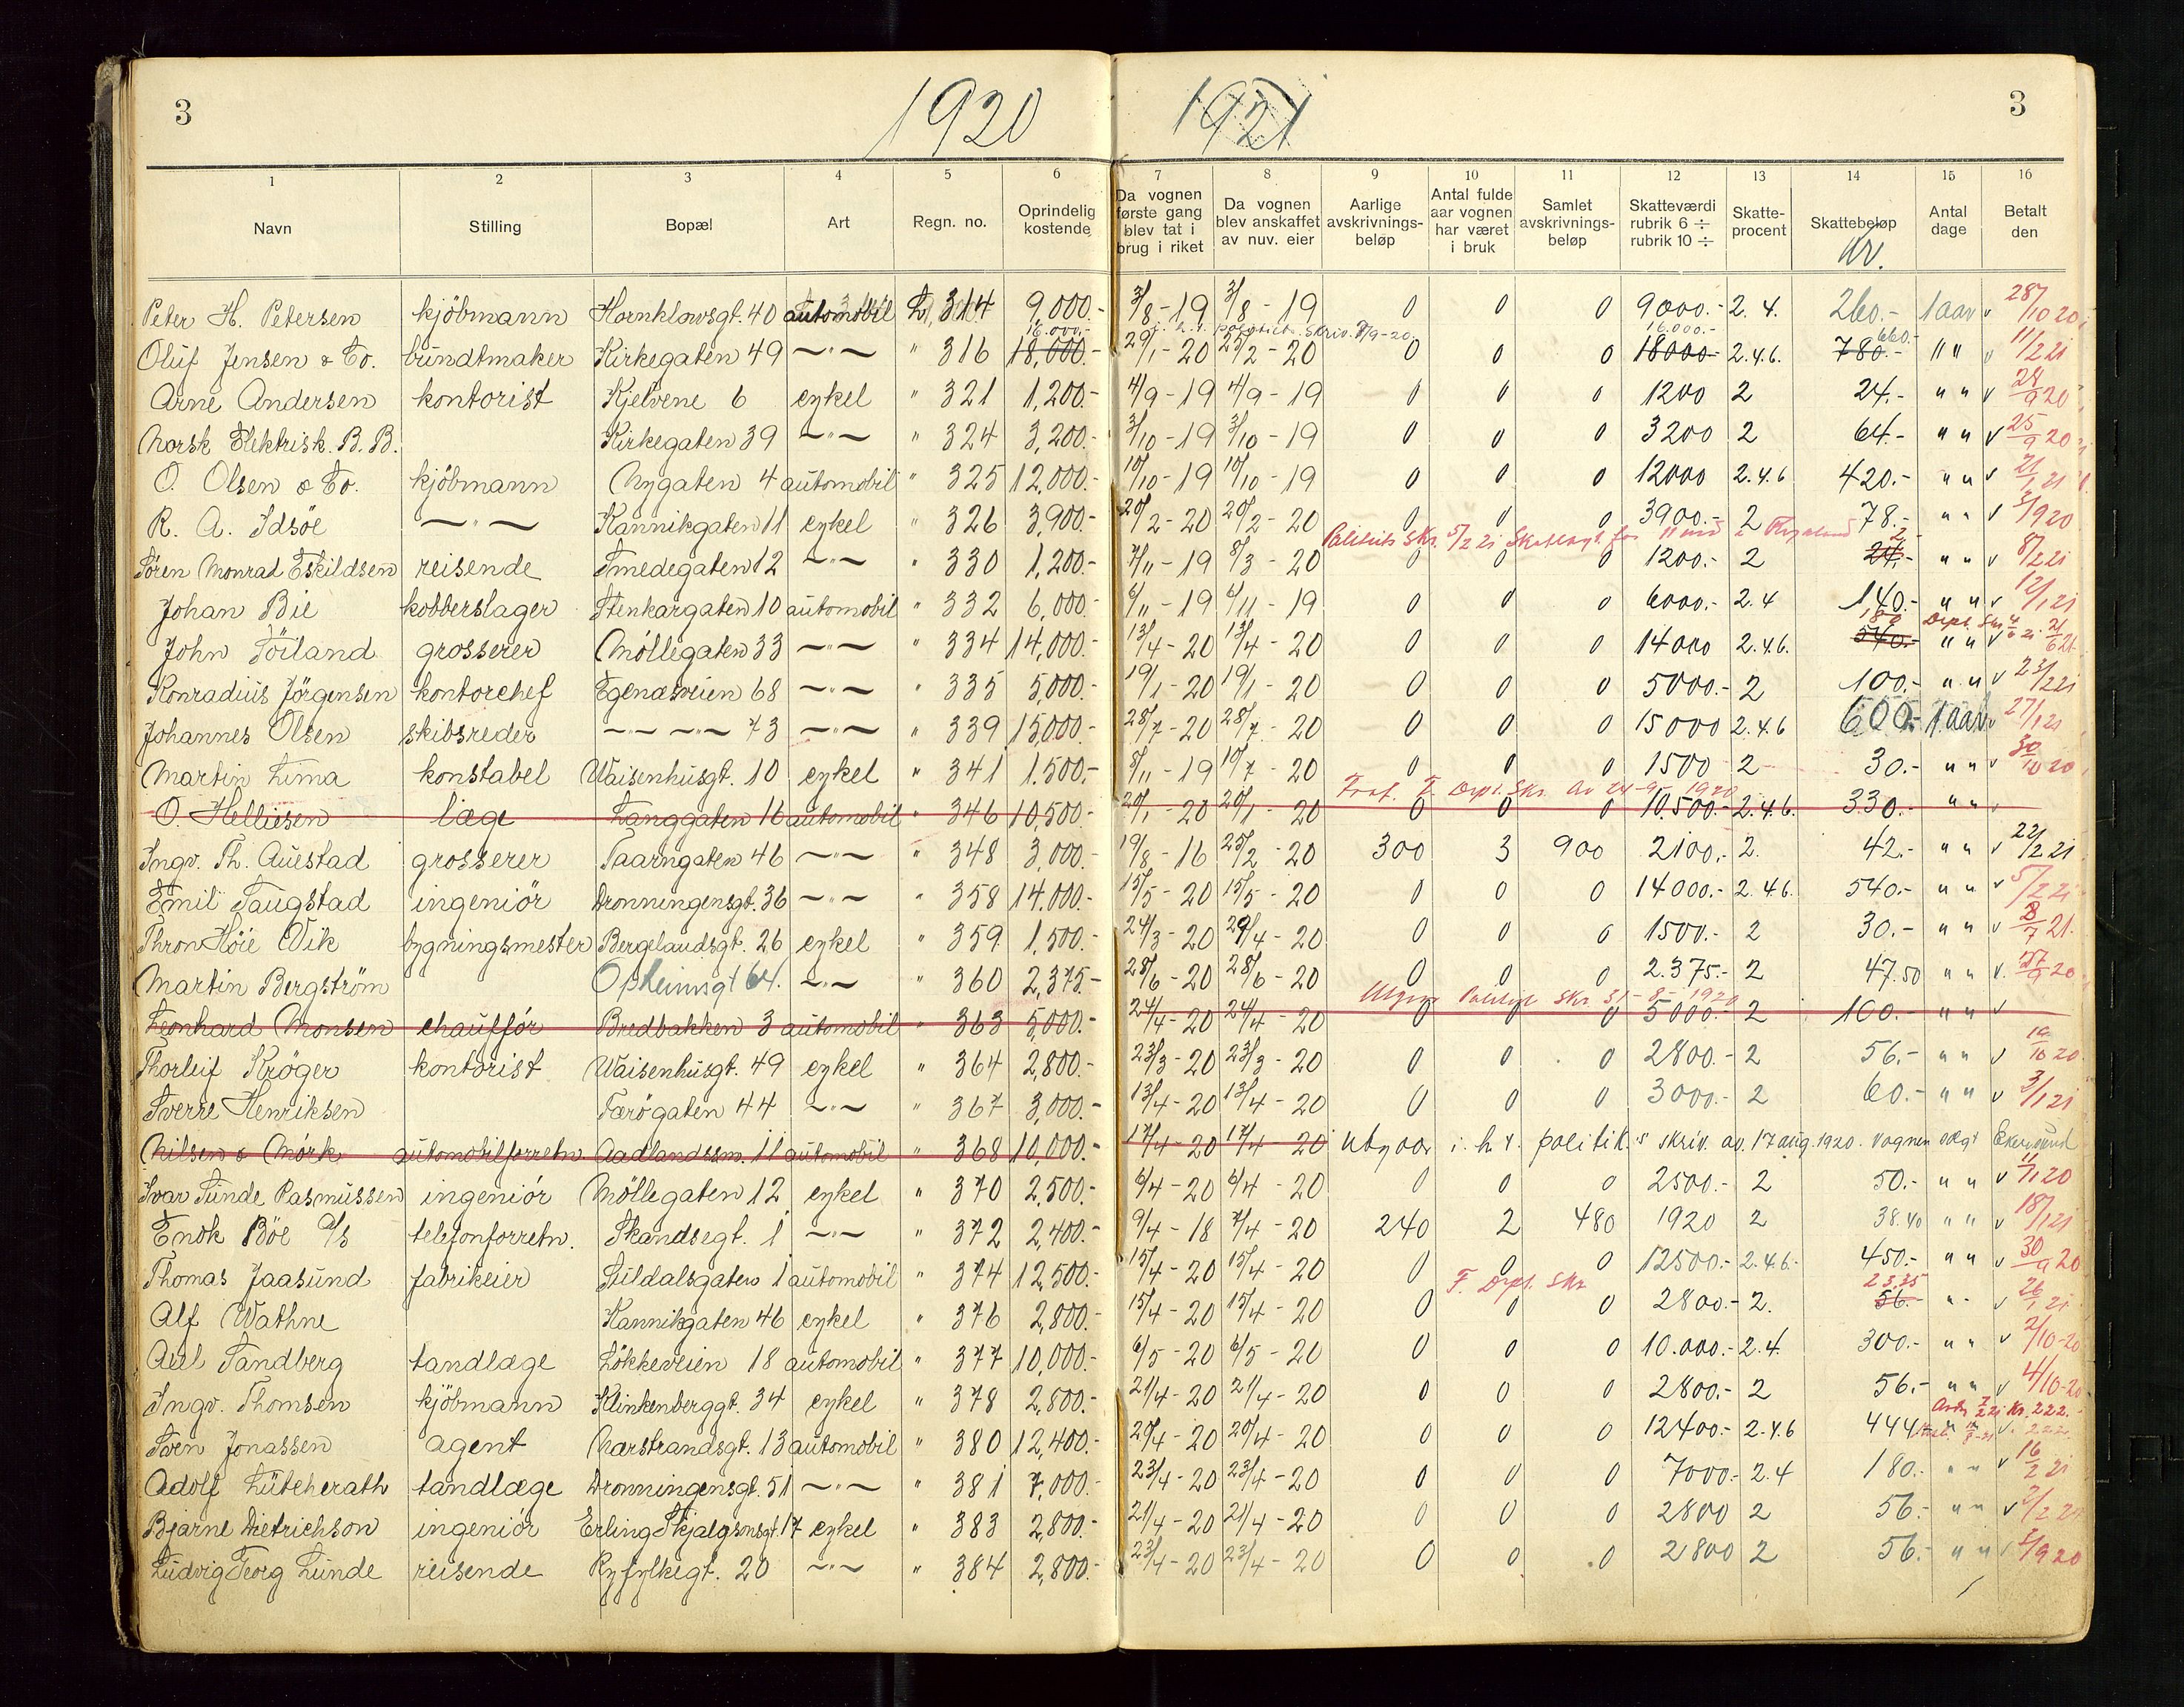 3 1920 1921 3
1 2 3 4 5 6 7 8 9 10 11 12 13 14 15 16
Navn Stilling Bopæl Art Regn. no. Oprindelig kostende Da vognen første gang blev tat i brug i riket Da vognen blev anskaffet av nuv. eier Aarlige avskrivnings-beløp Antal fulde aar vognen har været i bruk Samlet avskrivnings-beløp Skatteværdi rubrik 6 ÷ rubrik 10 ÷ Skatte-procent Skattebeløp Antal dage Betalt den
Kr.
Peter H. Petersen kjöbmann Hornklowsgt. 40 automobil L. 314 9,000.- 3/8-19 3/8-19 0 0 0 9000.- 2.4. 260.- 1 aar v 28/10 20
16.000.- i. h. t. politiets skriv. 7/9-20 16.000.- 660.-
Oluf Jensen & Co. bundtmaker Kirkegaten 49 —"— " 316 18,000.- 29/1-20 25/2-20 0 0 0 18000- 2.4.6. 780.- " " v 11/2 21
Arne Andersen kontorist Kjelvene 6 cykel " 321 1,200.- 4/9-19 4/9-19 0 0 0 1200 2 24.- " " v 24/9 20
Norsk Elektrisk. B.B. Kirkegaten 39 —"— " 324 3,200.- 3/10-19 3/10-19 0 0 0 3200 2 64.- " " v 25/9 20
O. Olsen & Co. kjöbmann Nygaten 4 automobil " 325 12,000.- 10/10-19 10/10-19 0 0 0 12000 2.4.6 420.- " " v 21/1 21
R. A. Idsöe —"— Kannikgaten 11 cykel " 326 3,900.- 20/2-20 20/2-20 0 0 0 3900.- 2 78.- " " v 3/9 20
Politiets Skr. 5/2 21 Skattlagt for 11 md i Rogaland 2
Sören Monrad Eskildsen reisende Smedegaten 12 —"— " 330 1,200.- 7/11-19 8/3-20 0 0 0 1200.- 2 24.- " " v 8/2 21
Johan Bie kobberslager Stenkargaten 10 automobil " 332 6,000.- 6/11-19 6/11-19 0 0 0 6000.- 2.4 140.- " " v 12/1 21
180 Dept. Skr. 4/6 21
John Söiland grosserer Möllegaten 33 —"— " 334 14,000.- 13/4-20 13/4-20 0 0 0 14000 2.4.6. 540.- " " v 21/6 21
Konradius Jörgensen kontorchef Egenæsveien 68 —"— " 335 5,000.- 19/1-20 19/1-20 0 0 0 5000.- 2 100.- " " v 23/2 21
Johannes Olsen skibsreder —"— —"— 73 —"— " 339 15,000.- 28/7-20 28/7-20 0 0 0 15000 2.4.6 600.- 1 aar v 27/1 21
Martin Lima konstabel Waisenhusgt. 10 cykel " 341 1.500.- 8/11-19 10/7-20 0 0 0 1500 2 30.- " " v 30/10 20
Fraf. F. Dept. Skr. av 24-9-1920
O. Helliesen læge Langgaten 16 automobil " 346 10,500.- 20/1-20 20/1-20 0 0 0 10.500.- 2.4.6. 330.- " " v
Ingv. Th. Auestad grosserer Taarngaten 46 —"— " 348 3,000.- 19/8-16 25/2-20 300 3 900 2100.- 2. 42.- " " v 22/2 21
Emil Saugstad ingeniör Dronningensgt. 36 —"— " 358 14.000.- 15/5-20 15/5-20 0 0 0 14000.- 2.4.6. 540.- " " v 5/2 21
Thron Höie Vik bygningsmester Bergelandsgt. 26 cykel " 359 1.500.- 24/3-20 29/4-20 0 0 0 1500.- 2 30.- " " v 8/7 21.
Martin Bergström Opheimsgt 64. —"— " 360 2,375.- 28/6-20 28/6-20 0 0 0 2.375.- 2 47.50 " " v. 27/9 20
Utgaar Politiets Skr. 31-8-1920
Leonhard Monsen chaufför Bredbakken 3 automobil " 363 5,000.- 24/4-20 24/4-20 0 0 0 5000.- 2 100.- " " v
Thorleif Kröger kontorist Waisenhusgt. 49 cykel " 364 2,800.- 23/3-20 23/3-20 0 0 0 2800.- 2 56.- " " v 19/10 20
Sverre Henriksen Færögaten 44 —"— " 367 3,000.- 13/4-20 13/4-20 0 0 0 3000.- 2 60.- " " v 3/1 21
Nilsen & Mörk automobilforretn. Aadlandssm. 11 automobil " 368 10,000.- 17/4-20 17/4-20 utgaar i. h. t. politik.s skriv. av. 17 aug. 1920. vognen solgt Ekersund
Ivar Tunde Rasmussen ingeniör Möllegaten 12 cykel " 370 2,500.- 6/4-20 6/4-20 0 0 0 2500.- 2 50.- " " v 11/1 20
Enok Böe A/S telefonforretn. Skandsegt. 1 —"— " 372 2,400.- 9/4-18 7/4-20 240 2 480 1920 2 38.40 " " v 18/1 21
Thomas Jaasund fabrikeier Lildalsgaten 1 automobil " 374 12,500.- 15/4-20 15/4-20 0 0 0 12500.- 2.4.6.- 450.- " " v 30/9 20
F. Dept. Skr 23.35
Alf Wathne Kannikgaten 46 cykel " 376 2,800.- 15/4-20 15/4-20 0 0 0 2800.- 2. 56.- " " v 26/1 21
Axel Sandberg tandlæge Lökkeveien 18 automobil " 377 10,000.- 6/5-20 6/5-20 0 0 0 10.000.- 2.4. 300.- " " v 2/10-20
Ingv. Thomsen kjöbmann Klinkenberggt. 34 cykel " 378 2,800.- 21/4-20 21/4-20 0 0 0 2800.- 2 56.- " " v 4/10-20
Avdr. 7/2 21 Kr. 222.-
Sven Jonassen agent Nærstrandsgt. 13 automobil " 380 12,400.- 20/4-20 20/4-20 0 0 0 12400.- 2.4.6 444 222
Adolf Lütcherath tandlæge Dronningensgt. 51 —"— " 381 7,000.- 23/4-20 23/4-20 0 0 0 7000.- 2.4 180.- " " v 16/2 21
Bjarne Dietrichson ingeniör Erling Skjalgsonsgt. 17 cykel " 383 2,800.- 21/4-20 21/4-20 0 0 0 2800 2 56.- " " v 2/2 21
Ludvig Georg Lunde reisende Ryfylkegt. 20 —"— " 384 2,800.- 23/4-20 23/4-20 0 0 0 2800 2 56.- " " 8/9 20